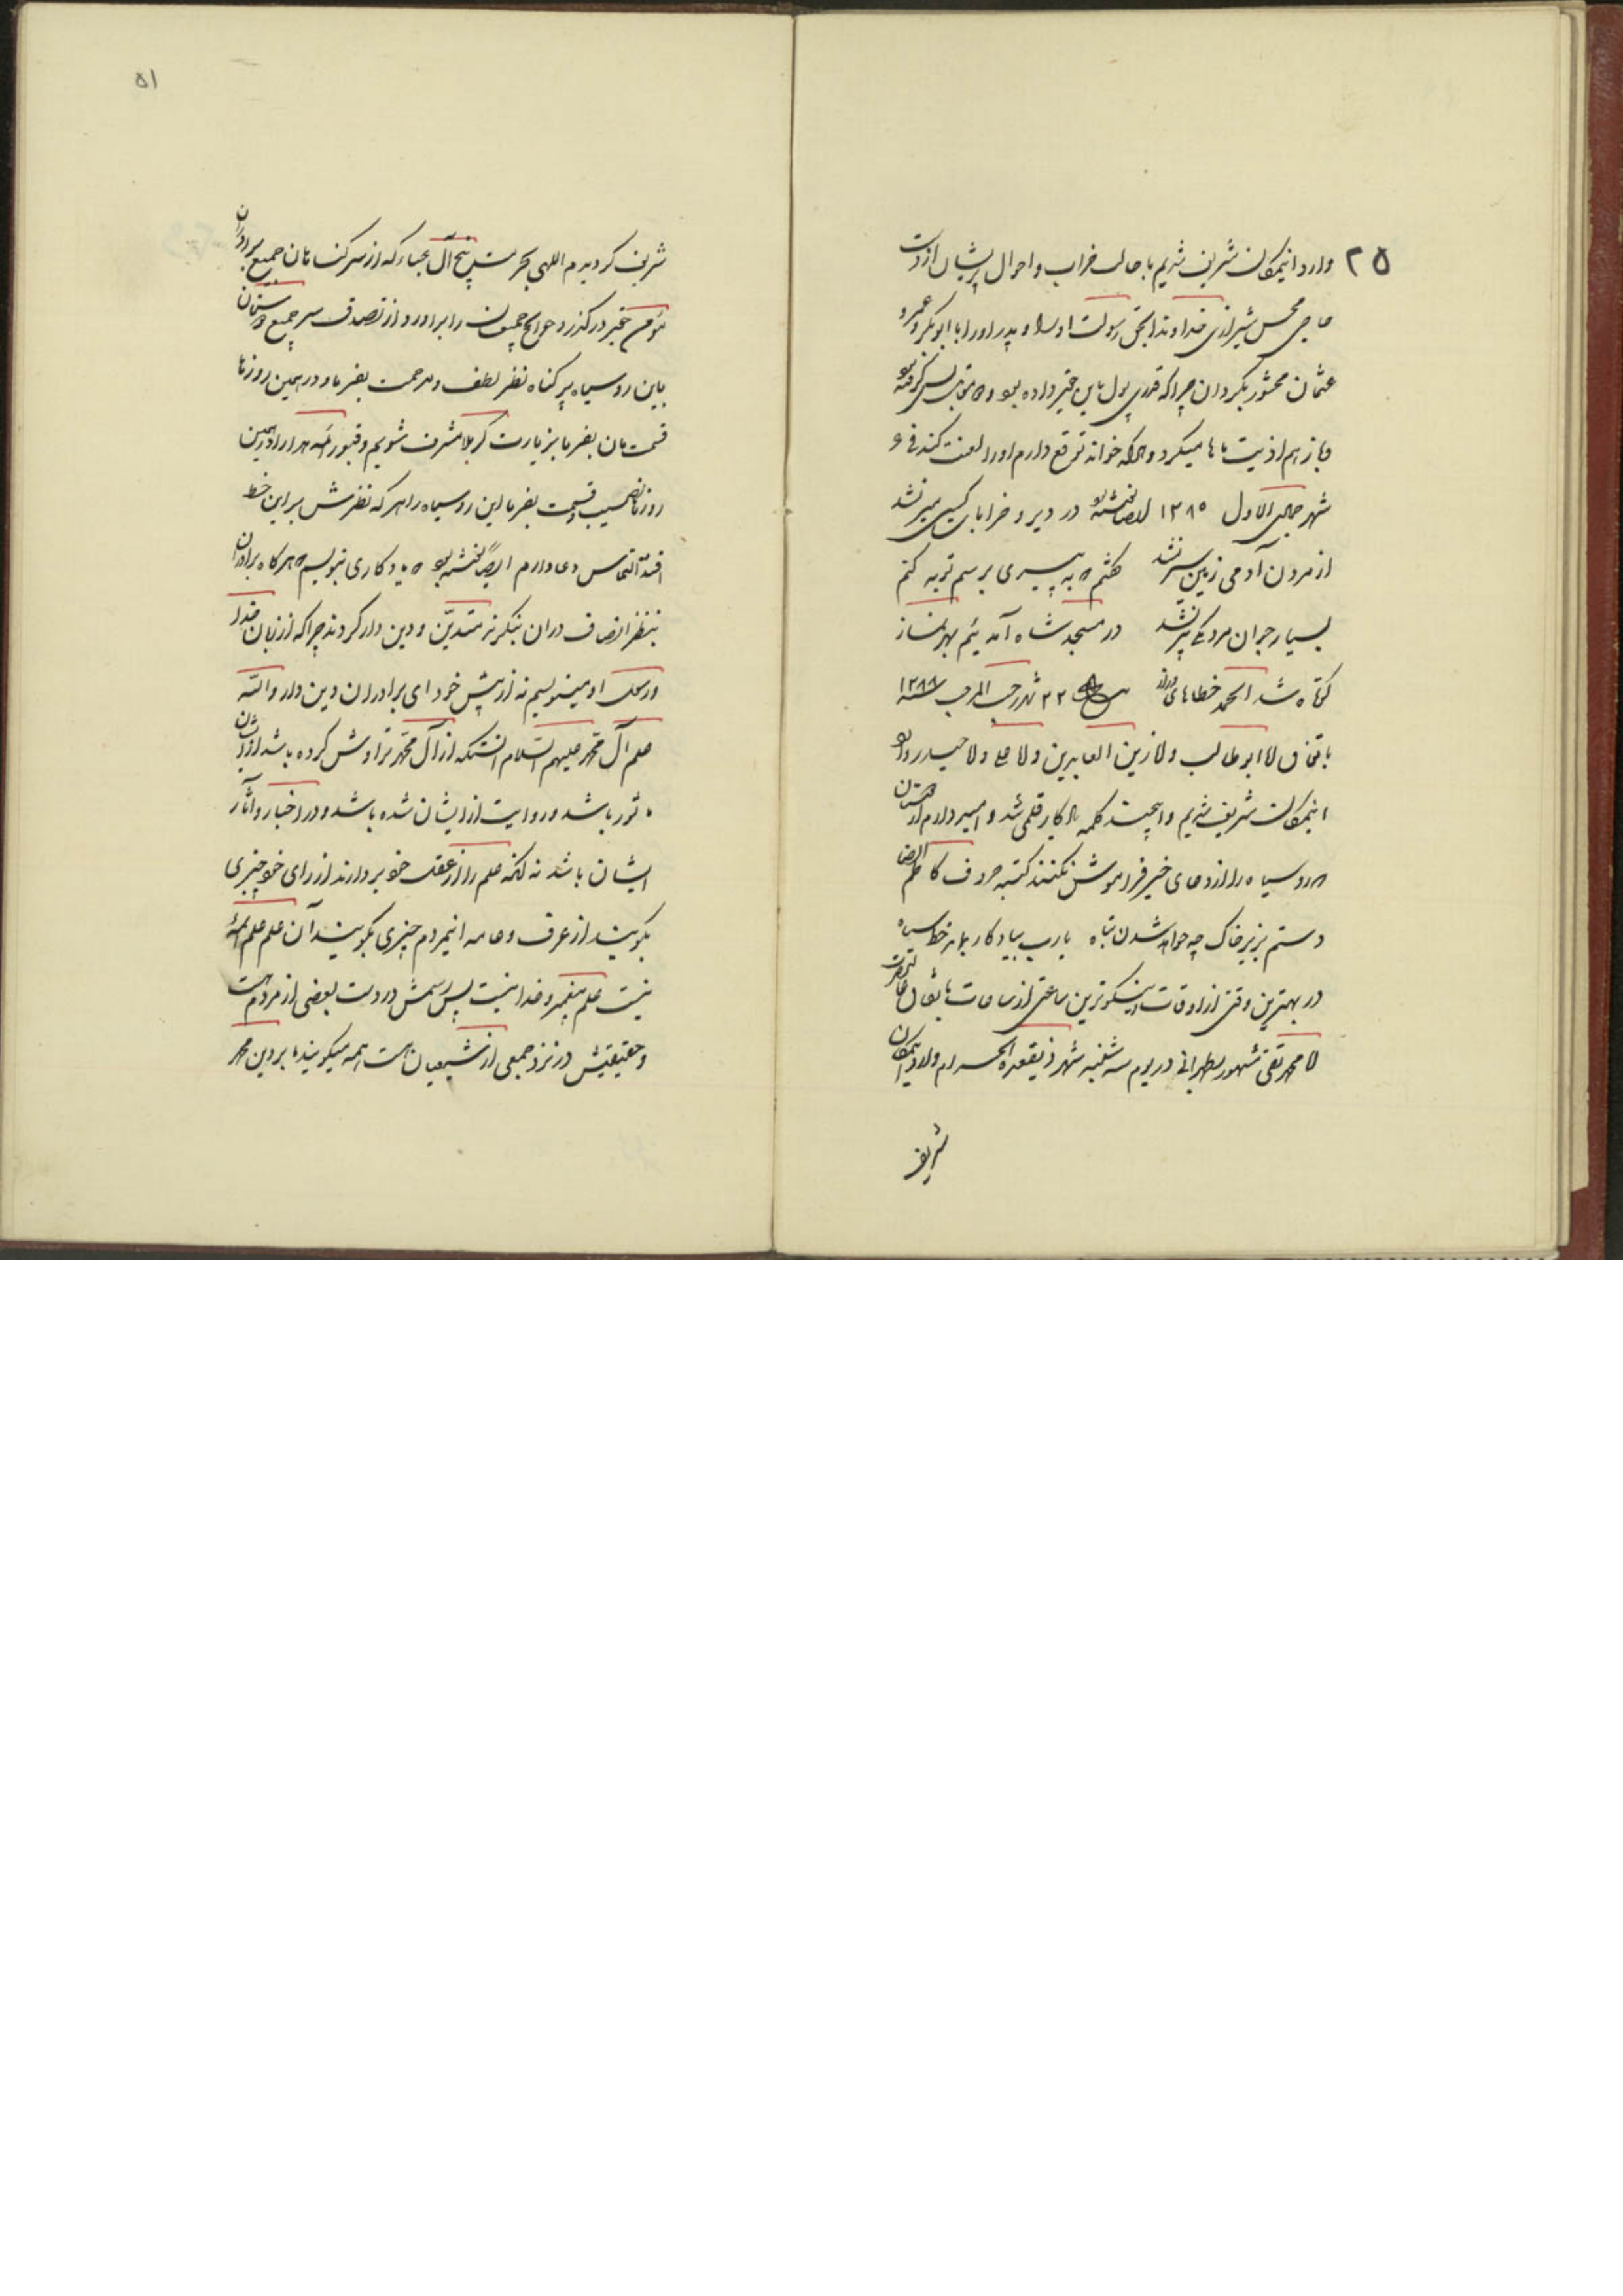 ۲۵
وارد اینمکان شریف شدیم با حالت خراب و احوال پریشان از دست
حاجی محسن شیرازی خداوندا بحق رسولت او را و پدر او را با ابوبکر و عمر و
عثمان محشور بگردان چرا که قدری پول باین حقیر داده بود و
و باز هم اذیت ماها میکرد و هر که خواند توقع دارم او را لعنت کند فی
شهر جمادی الاول ۱۲۸۵ ایضا نوشته بود در دیر و خرابات کسی میر نشد
از مردن آدمی زمین سیر نشد گفتم که به پیری برسم توبه کنم
بسیار جوان مرد یکی پیر نشد در مسجد شاه آمدیم بهر نماز
کوتاه شد الحمد خطاهای دراز ۲۲ شهر رجب المرجب سنه ۱۲۸۸
باتفاق ملا ابوطالب و ملا زین العابدین و ملا و ملا حیدر وارد
اینمکان شریف شدیم و این چند کلمه یادگار قلمی شد و امید دارم از دوستان
روسیاه را از دعای خیر فراموش نکنند کتبه حروف کاظم ایضا
دستم بزیر خاک چه خواهد شدن تباه یا رب بیادگار بماند خط سیاه
در بهترین وقتی از اوقات و نیکوترین ساعتی از ساعات باتفاق
ملا محمد تقی مشهور بطهرانی در یوم سه شنبه شهر ذیقعده الحرام وارد اینمکان
شریف
۵۱
شریف گردیدم اللهی بحرمت پنج آل عباء که از سر گناهان جمیع برادران
مؤمن حقیر درگذر و حوایج جمیعمان را برآور و از تصدق سر جمیع دوستان
باین روسیاه پر گناه نظر لطف و مرحمت بفرما و در همین روزها
قسمتمان بفرما بزیارت کربلا مشرف شویم و قبور ائمه هدا را در همین
روزها نصیب و قسمت بفرما این روسیاه را هر که نظرش بر این خط
افتد التماس دعا دارم ایضاً نوشته بود یادگاری بنویسم هر گاه برادران
بنظر انصاف در آن بنگرند متدیّن و دین دار گردند چرا که از زبان خدا
و رسول او مینویسم نه از پیش خود ای برادران دین دار والله
علم آل محمّد علیهم السّلام انستکه از آل محمّد تراوش کرده باشد از ایشان
ماثور باشد و روایت از ایشان شده باشد و در اخبار و آثار
ایشان باشد نه آنکه علم را از عقل خود بردارند از رای خود چیزی
بگویند از عرف و عامه اینمردم چیزی بگویند آن علم علم ائمّه
نیست علم پیغمبر و خدا نیست پس رسمش در دست بعضی از مردم است
و حقیقتش در نزد جمعی از شیعیان است همه میگویند ما بر دین محمد